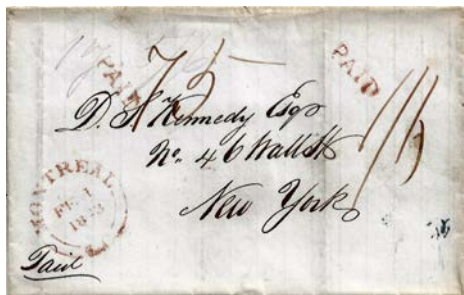 PAID
75
PAID
D. S. Kennedy Esqr
No. 46 Wall St
New York
MONTREAL
FE 1
Paid